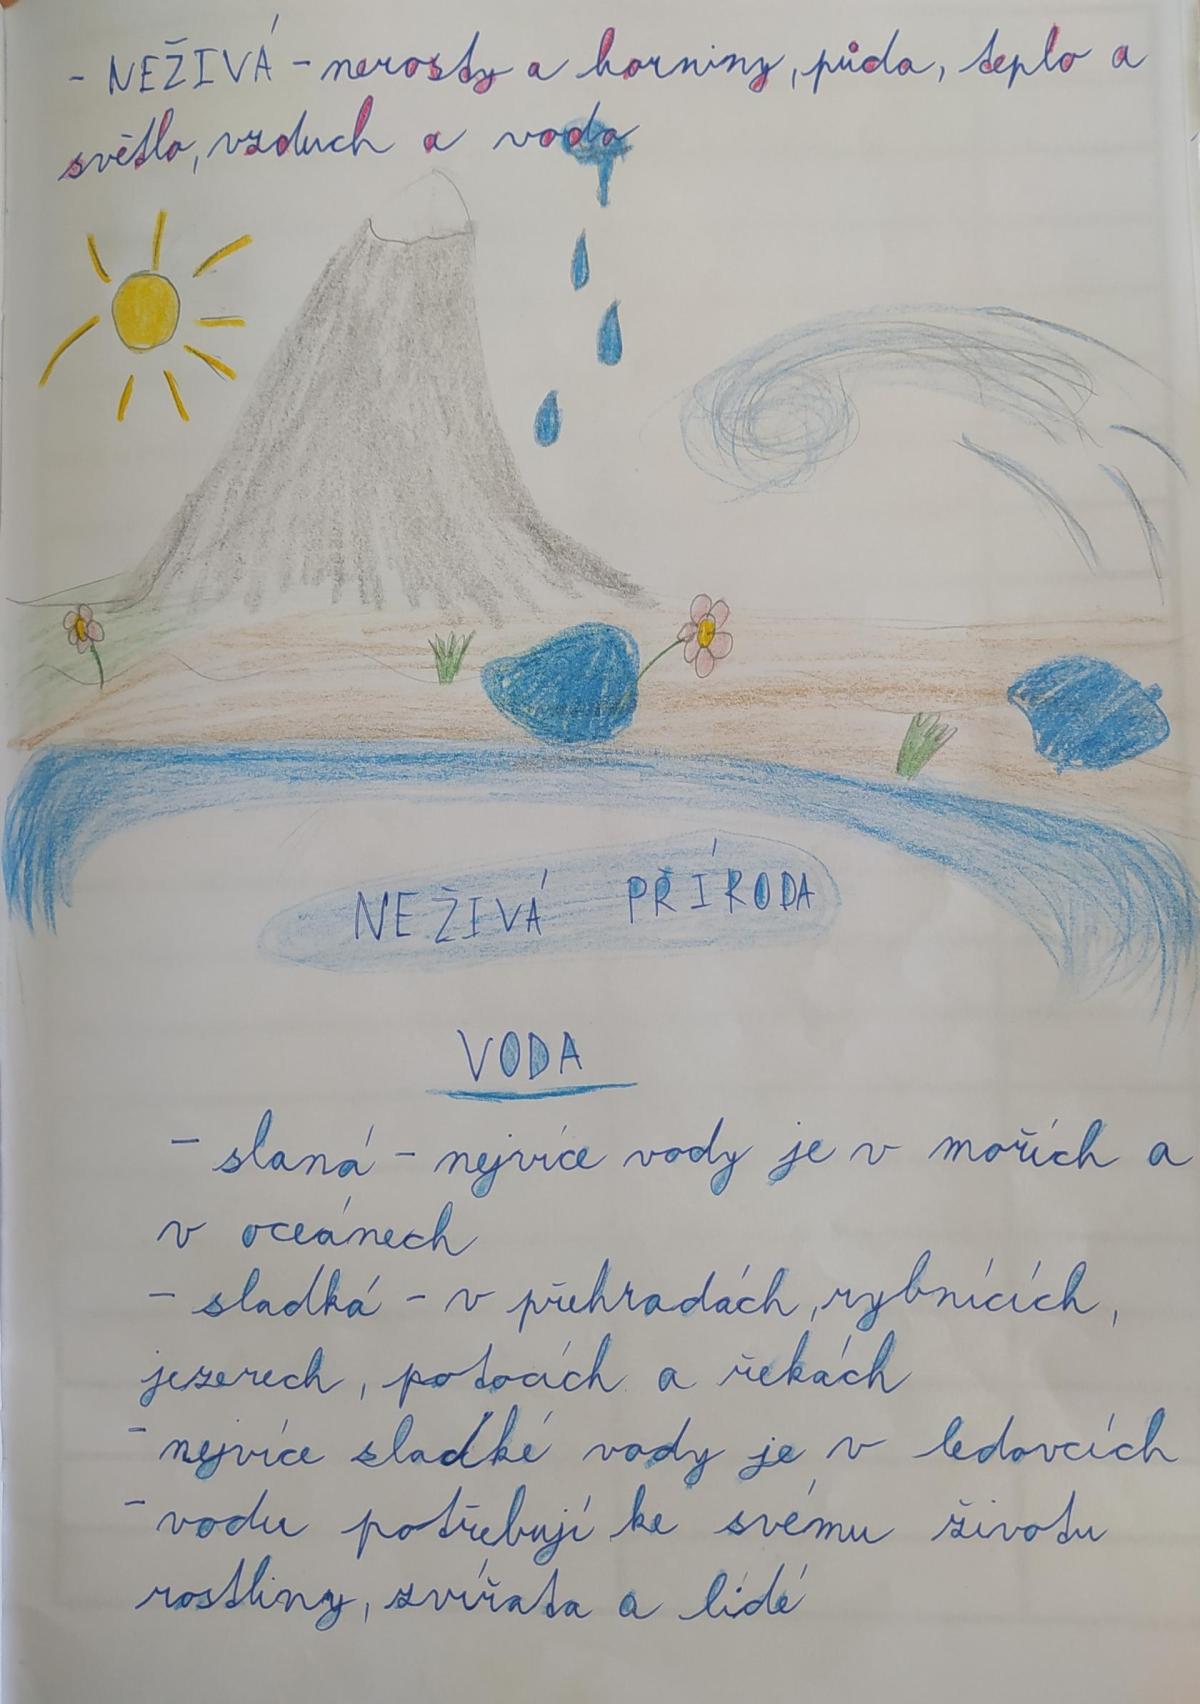 - NEŽIVÁ - nerosty a horniny, půda, teplo a
světlo, vzduch a voda
NEŽIVÁ PŘÍRODA
VODA
- slaná - nejvíce vody je v mořích a
v oceánech
- sladká - v přehradách, rybnících,
jezerech, potocích a řekách
- nejvíce sladké vody je v ledovcích
- vodu potřebují ke svému životu
rostliny, zvířata a lidé